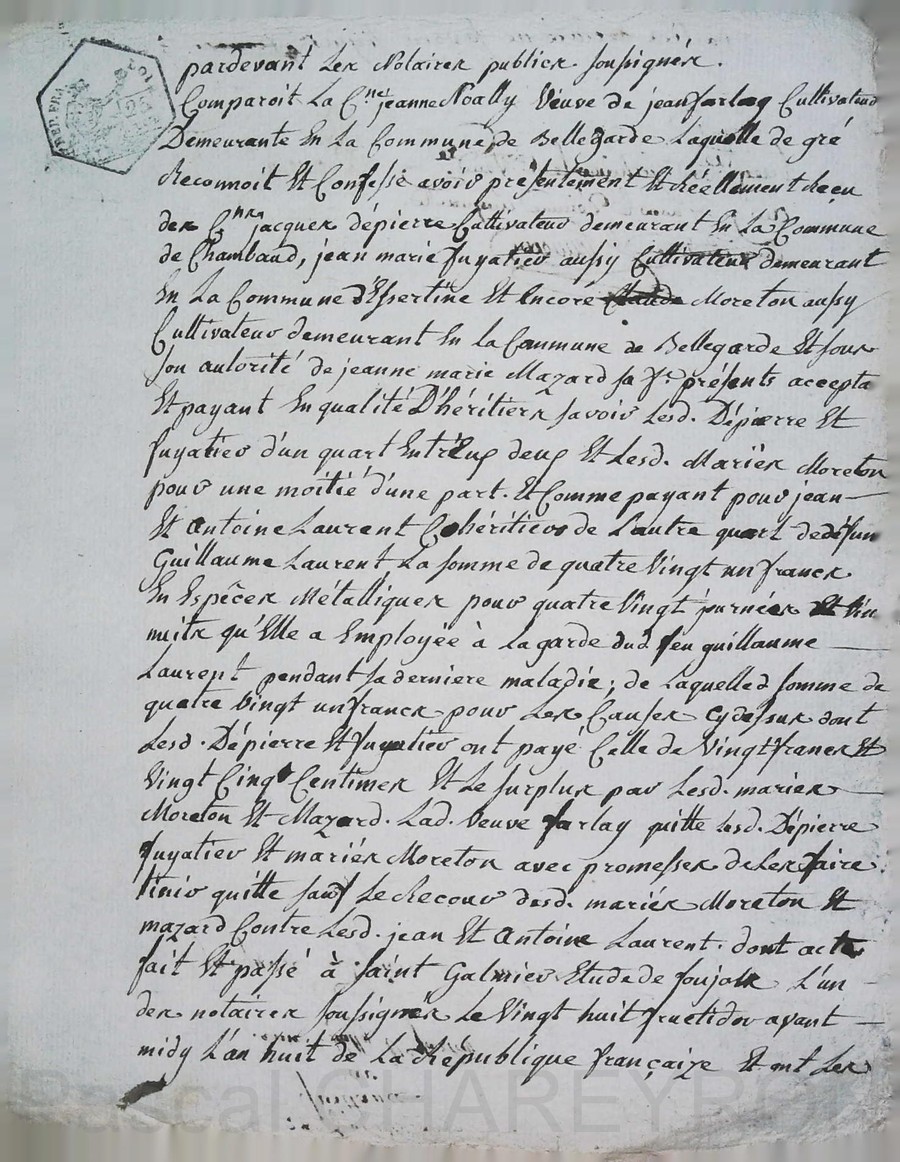 pardevant Les Notaires publics soussignés.
Comparoit La C.ne jeanne Noally Veuve de jean farlay Cultivateur
Demeurante En La Commune de Bellegarde Laquelle de gré
Reconnoit Et Confesse avoir présentement Et Réellement Reçeu
des C.ns jacques dépierre Cultivateur demeurant En La Commune
de Chambaud, jean marie fuyatier aussy Cultivateur demeurant
En La Commune d'Essertine Et Encore Claude Moreton aussy
Cultivateur demeurant En la Commune de Bellegarde Et sous
son autorité de jeanne marie Mazard sa f.e présents accepta
Et payant En qualité D'héritiers savoir Lesd. Dépierre Et
fuyatier d'un quart Entr'Eux deux Et Lesd. Mariés Moreton
pour une moitié d'une part. Et Comme payant pour jean
Et Antoine Laurent Cohéritiers de L'autre quart de défun
Guillaume Laurent La somme de quatre Vingt un francs
En Espêces Métalliques pour quatre Vingt journées Et
nuits qu'Elle a Employée à La garde dud. feu guillaume
Laurent pendant sa derniere maladie; de Laquelled. somme de
quatre Vingt un francs pour Les Causes Cy dessus dont
Lesd. Dépierre Et fuyatier ont payé Celle de Vingt francs Et
Vingt Cinq Centimes Et Le surplus par Lesd. mariés
Moreton Et Mazard. Lad. Veuve farlay quitte Lesd. Dépierre
fuyatier Et mariés Moreton avec promesses de Les faire
tenir quitte sauf Le Recour desd. mariés Moreton Et
mazard Contre Lesd. jean Et Antoine Laurent. dont acte
fait Et passé à Saint Galmier Etude de soujole L'un
des notaires soussignés Le Vingt huit fructidor avant
midy L'an huit de La République françaize Et ont Les